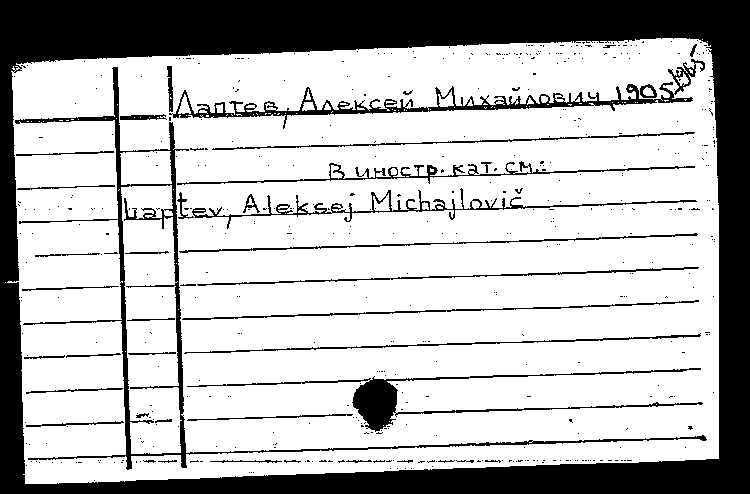 Лаптев, Алексей Михайлович, 1905-1965
В иностр. кат. см.:
Laptev, Aleksej Michajlovič